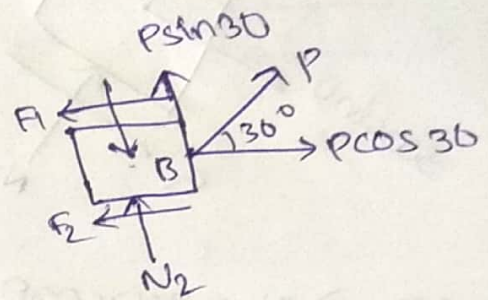 Psin30
P
F1
30°
Pcos30
B
F2
N2